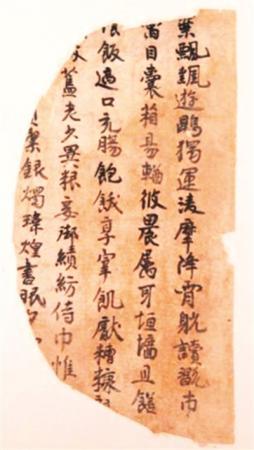 葉飄颻遊鵾獨運淩摩降霄躭讀翫市
寓目囊箱易輶攸畏属耳垣墻具饍
飯適口充腸飽飫享宰飢猒糟糠
舊老少異粮妾御績紡侍巾帷
潔銀燭煒煌晝眠夕